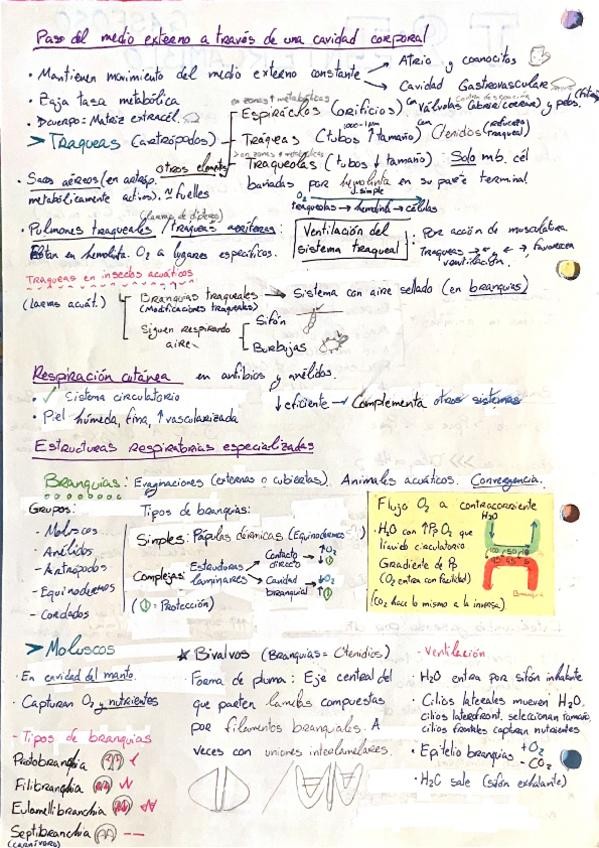 Paso del medio externo a través de una cavidad corporal
· Mantienen movimiento del medio externo constante → Atrio y coanocitos
→ Cavidad Gastrovascular
· Baja tasa metabólica
· D cuerpo: Matriz extracél.
en zonas ↑ metabólicas
Espiráculos (orificios) con Válvulas (abre/cierra) y pelos. (filtro)
> TRAQUEAS (artrópodos)
Tráqueas (tubos ↑ tamaño) con Ctenidios (refuerzo traqueal)
> en zonas ↑ metabólicas
Traqueolas (tubos ↓ tamaño). Solo mb. cél
bañadas por hemolinfa en su parte terminal.
otros elementos
· Sacos aéreos (en artróp. metabólicamente activos). ≈ fuelles
O2 simple
traqueolas → hemolinfa → células
(larvas de díptera)
· Pulmones traqueales / traqueas aeríferas:
Están en hemolinfa. O2 a lugares específicos.
Ventilación del sistema traqueal: Por acción de musculatura.
Traqueas → ←, ← →, favorecen ventilación.
Traqueas en insectos acuáticos
(Larvas acuát.)
Branquias traqueales → Sistema con aire sellado (en branquias)
(Modificaciones traqueales)
Siguen respirando aire
Sifón
Burbujas
Respiración cutánea en anfibios y anélidos.
· ✓ Sistema circulatorio
↓ eficiente → Complementa otros sistemas
· Piel húmeda, fina, ↑ vascularizada
Estructuras respiratorias especializadas
Branquias: Evaginaciones (externas o cubiertas). Animales acuáticos. Convergencia.
Grupos:
- Moluscos
- Anélidos
- Artrópodos
- Equinodermos
- Cordados
Tipos de branquias:
Simples: Pápulas dérmicas (Equinodermos)
Complejas: Estructuras laminares
→ Contacto directo → ↑O2 ↓
→ Cavidad branquial → ↓O2 ↑
( = Protección)
Flujo O2 a contracorriente
H2O
· H2O con ↑P O2 que líquido circulatorio
Gradiente de Pp
(O2 entra con facilidad)
(CO2 hace lo mismo a la inversa)
Branquia
> Moluscos
· En cavidad del manto.
· Capturan O2 y nutrientes
- Tipos de branquias
Protobranchia
Filibranchia
Eulamellibranchia
Septibranchia
(carnívoro)
★ Bivalvos (Branquias = Ctenidios)
Forma de pluma: Eje central del
que parten lamelas compuestas
por filamentos branquiales. A
veces con uniones interlamelares.
- Ventilación
· H2O entra por sifón inhalante
Cilios laterales mueven H2O,
cilios laterofront. seleccionan tamaño,
cilios frontales capturan nutrientes
· Epitelio branquias + O2 - CO2
· H2O sale (sifón exhalante)